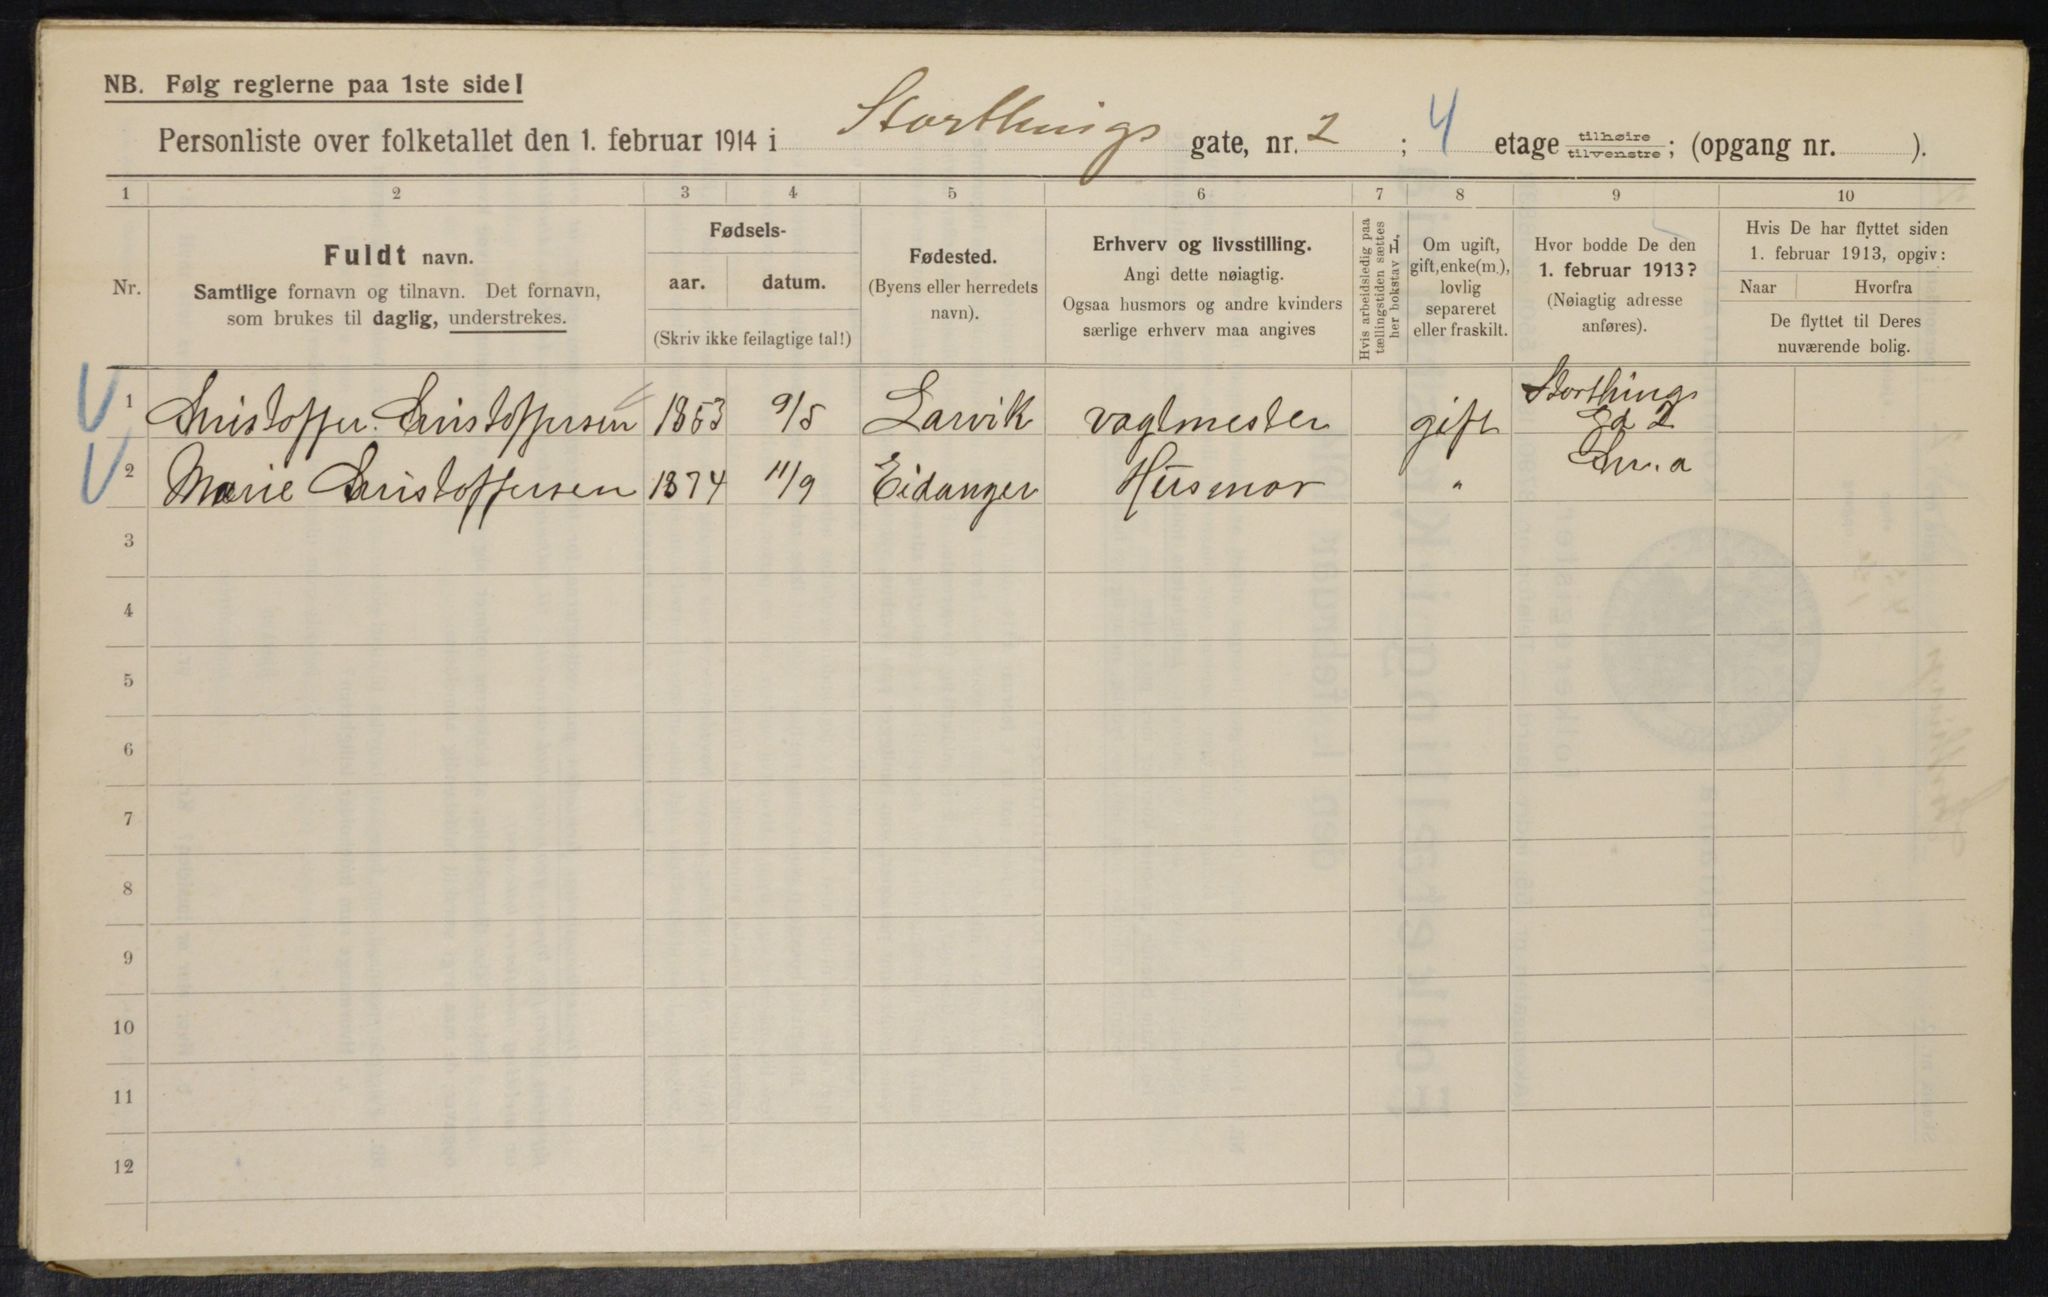 NB. Følg reglerne paa 1ste side!
Personliste over folketallet den 1. februar 1914 i Storthings gate, nr. 2 ; 4 etage tilhøire tilvenstre ; (opgang nr. ).
1 2 3 4 5 6 7 8 9 10
Nr.
Fuldt navn.
Samtlige fornavn og tilnavn. Det fornavn,
som brukes til daglig, understrekes.
Fødsels-
aar. datum.
(Skriv ikke feilagtige tal!)
Fødested.
(Byens eller herredets
navn).
Erhverv og livsstilling.
Angi dette nøiagtig.
Ogsaa husmors og andre kvinders
særlige erhverv maa angives
Hvis arbeidsledig paa
tællingstiden sættes
her bokstav L.
Om ugift,
gift, enke(m.),
lovlig
separeret
eller fraskilt.
Hvor bodde De den
1. februar 1913?
(Nøiagtig adresse
anføres).
Hvis De har flyttet siden
1. februar 1913, opgiv:
Naar Hvorfra
De flyttet til Deres
nuværende bolig.
1 Christoffer Christoffersen 1853 9/5 Larvik vagtmester gift Storthings
Gd 2
2 Marie Christoffersen 1874 11/9 Eidanger Husmor "
3
4
5
6
7
8
9
10
11
12